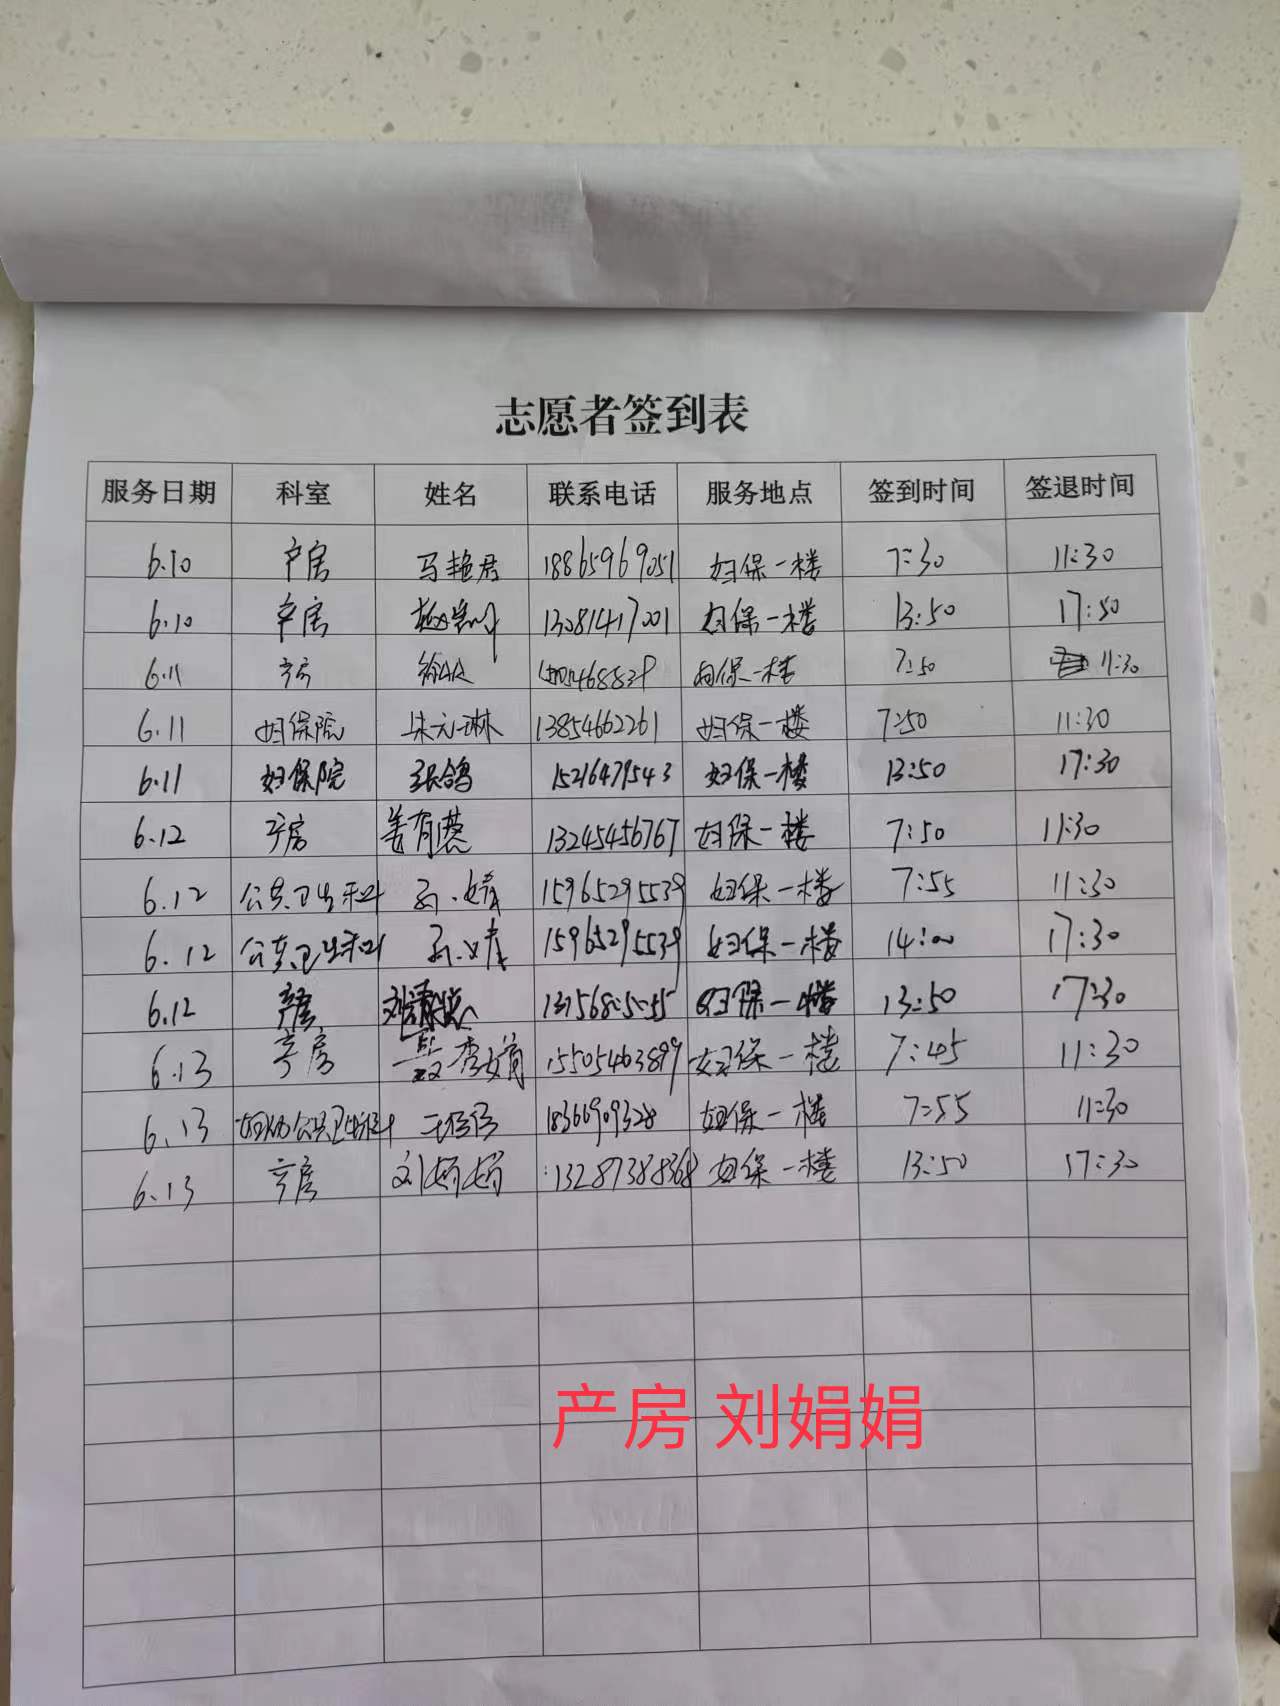 志愿者签到表
服务日期 科室 姓名 联系电话 服务地点 签到时间 签退时间
6.10 产房 马艳君 18865969051 妇保一楼 7:30 11:30
6.10 产房 13081417001 妇保一楼 13:50 17:50
6.11 产房 妇保一楼 7:50 11:30
6.11 妇保院 朱元琳 13854662261 妇保一楼 7:50 11:30
6.11 妇保院 张鸽 15216479543 妇保一楼 13:50 17:30
6.12 产房 姜有慧 13245456767 妇保一楼 7:50 11:30
6.12 公共卫生科 孙婧 15965295539 妇保一楼 7:55 11:30
6.12 公共卫生科 孙婧 15965295539 妇保一楼 14:00 17:30
6.12 产房 妇保一楼 13:50 17:30
6.13 产房 李文娟 15505463899 妇保一楼 7:45 11:30
6.13 18366909328 妇保一楼 7:55 11:30
6.13 产房 刘娟娟 13287388368 妇保一楼 13:50 17:30
产房 刘娟娟